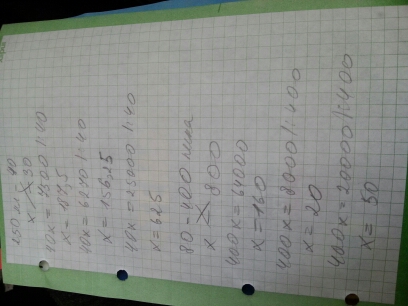 250 мл 40
x 30
40x = 7500 |:40
x = 187,5
40x = 6250 |:40
x = 156,25
40x = 25000 |:40
x = 625
80 - 400
x 800
400x = 64000
x = 160
400x = 8000 |:400
x = 20
400x = 20000 |:400
x = 50